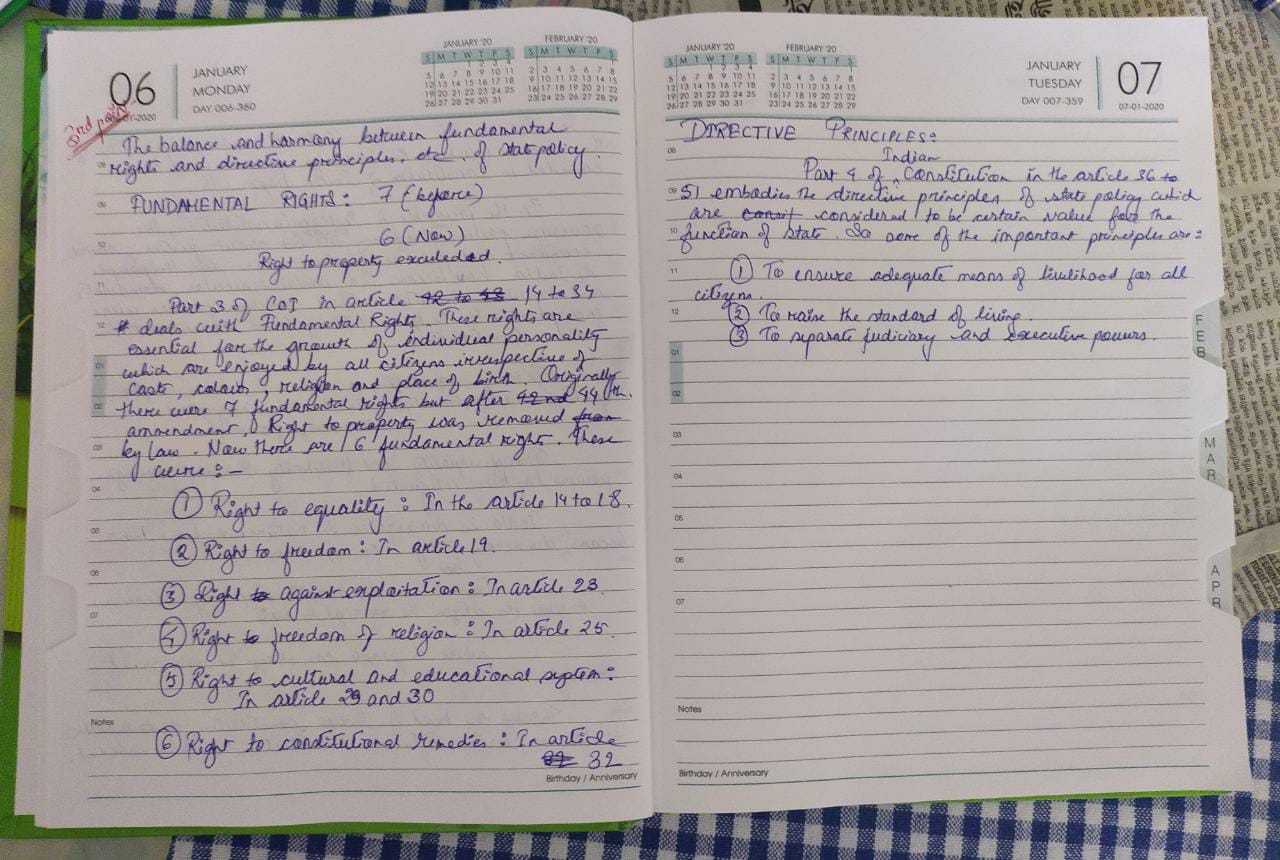 06
JANUARY
MONDAY
DAY 006-360
06-01-2020
JANUARY '20
S M T W T F S
1 2 3 4
5 6 7 8 9 10 11
12 13 14 15 16 17 18
19 20 21 22 23 24 25
26 27 28 29 30 31
FEBRUARY '20
S M T W T F S
1
2 3 4 5 6 7 8
9 10 11 12 13 14 15
16 17 18 19 20 21 22
23 24 25 26 27 28 29
3rd
The balance and harmony between fundamental
rights and directive principles. etc. of state policy.
FUNDAMENTAL RIGHTS: 7 (before)
6 (Now)
Right to property exculeded.
Part 3 of COI in article 42 to 48 14 to 34
# deals with Fundamental Rights. These rights are
essential for the growth of individual personality
which are enjoyed by all citizens irrespective of
caste, colour, religion and place of birth. Originally
there were 7 fundamental rights but after 42nd 44th.
ammendment, Right to property was removed from
by law. Now there are 6 fundamental right. These
were :-
① Right to equality : In the article 14 to 18.
② Right to freedom : In article 19.
③ Right to against exploitation : In article 23.
④ Right to freedom of religion : In article 25.
⑤ Right to cultural and educational system :
In article 29 and 30
Notes
⑥ Right to constitutional remedies : In article
32
Birthday / Anniversary
JANUARY '20
S M T W T F S
1 2 3 4
5 6 7 8 9 10 11
12 13 14 15 16 17 18
19 20 21 22 23 24 25
26 27 28 29 30 31
FEBRUARY '20
S M T W T F S
1
2 3 4 5 6 7 8
9 10 11 12 13 14 15
16 17 18 19 20 21 22
23 24 25 26 27 28 29
JANUARY
TUESDAY
DAY 007-359
07
07-01-2020
DIRECTIVE PRINCIPLES:
Indian
Part 4 of Constitution in the article 36 to
51 embodies the directive principles of state policy which
are consit considered to be certain value for the
function of state. So some of the important principles are:
① To ensure adequate means of livelihood for all
citizens.
② To raise the standard of living.
③ To separate judiciary and executive powers.
Notes
Birthday / Anniversary
FEB
MAR
APR